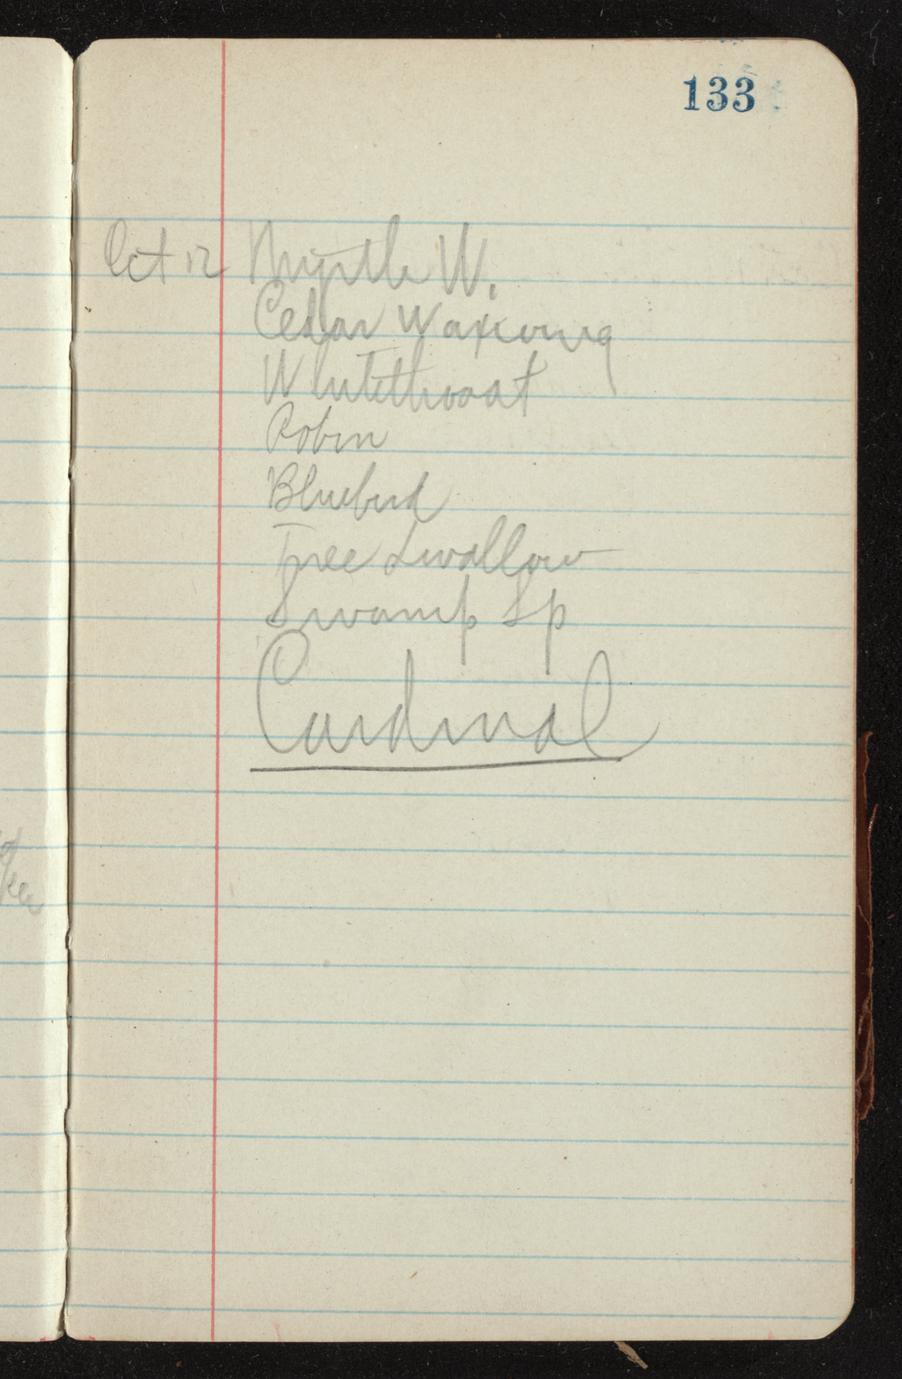 133
Oct 12 Myrtle W.
Cedar Waxwing
Whitethroat
Robin
Bluebird
Tree Swallow
Swamp Sp
Cardinal